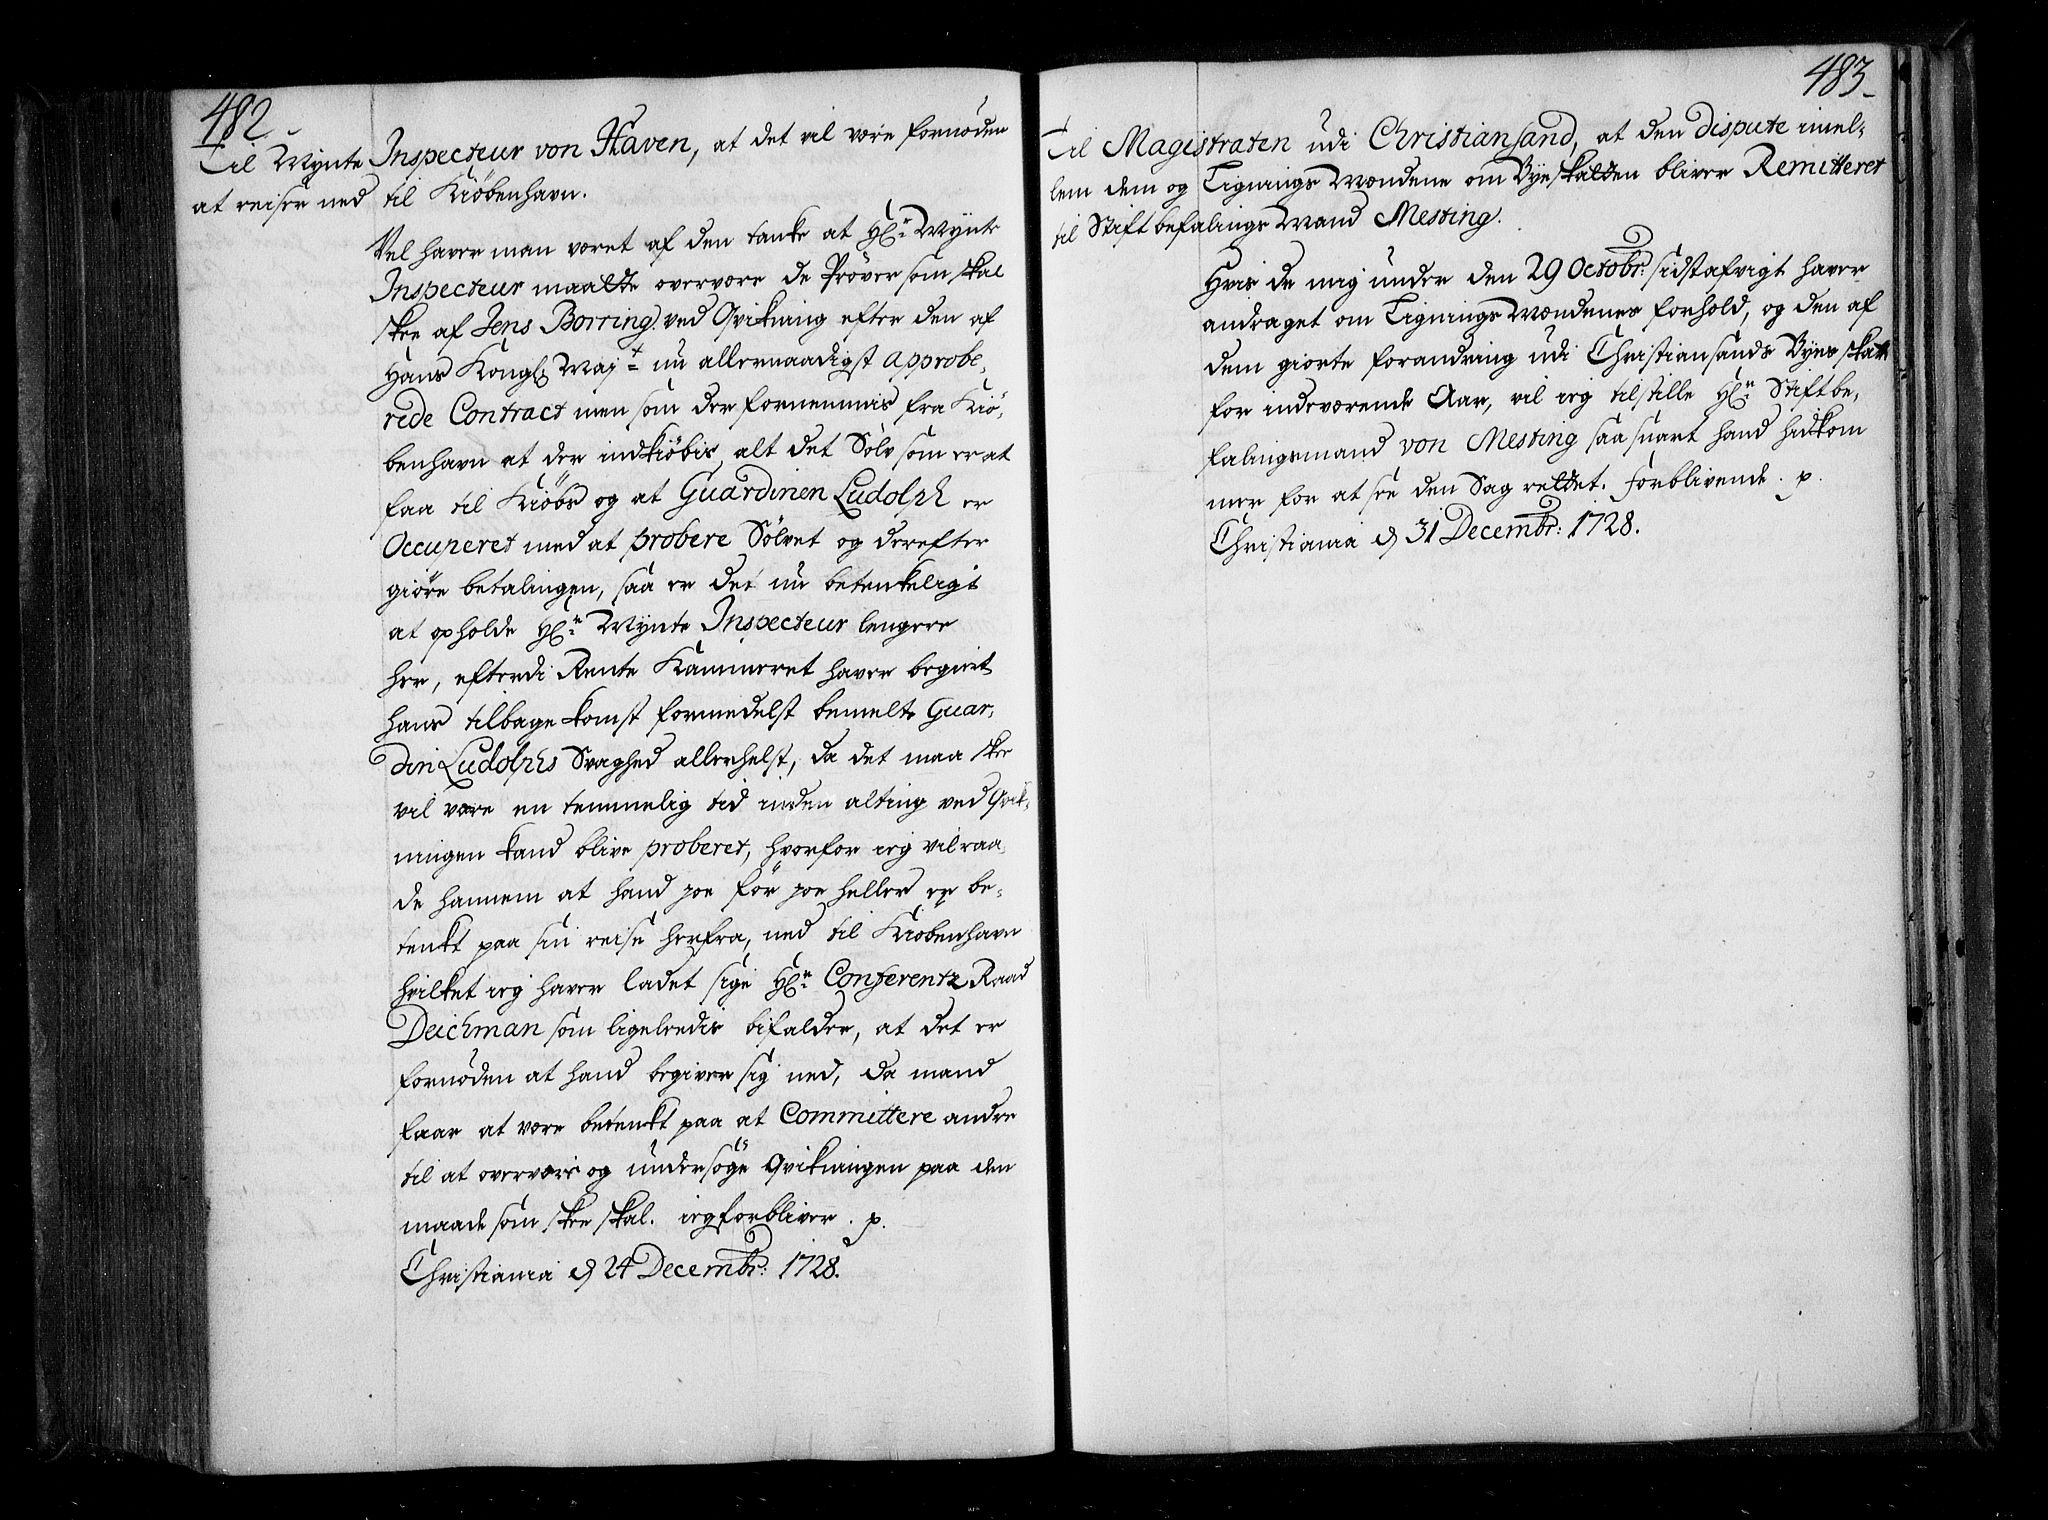 482.
Til Mynte Inspecteur von Haven, at det vil være fornøden
at reise ned til Kiøbenhavn.
Vel haver man været af den tanke at Hr. Mynte
Inspecteur maatte overvære de Prøver som skal
skee af Jens Borring ved Qvikning efter den af
Hans Kongl. Maj.t nu allernaadigst approbe,
rede Contract men som der fornemmis fra Kiö,
benhavn at der indkiöbis alt det Sölv som er at
faa til Kiöbs og at Guardinen Ludolph er
Occuperet med at probere Sölvet og derefter
giöre betalingen, saa er det nu betenkeligt
at opholde Hr. Mynte Inspecteur lengere
her, efterdi Rente Kammeret haver begiert
hans tilbage komst formedelst bemelte Guar,
din Ludolphs Svaghed allerhelst, da det maa skee
vil være en temmelig tid inden alting ved Qvik,
ningen kand blive proberet, hvorfor ieg vil raa,
de hannem at hand joe för joe heller er be,
tenkt paa sin reise herfra, ned til Kiøbenhavn
hvilket ieg haver ladet sige Hr. Conferentz Raad
Deichman som ligeledis bifalder, at det er
fornøden at hand begiver sig ned, da mand
faar at være betenkt paa at Committere andre
til at overvære og undersöge Qvikningen paa den
maade som skee skal. ieg forbliver. p.
Christiania d 24 Decembr: 1728.
483.
Til Magistraten udi Christiansand, at den dispute imel-
lem dem og Tignings Mændene om Byeskatten bliver Remitteret
til Stiftbefalings Mand Mesting.
Hvis de mig under den 29 Octobr: sidstafvigt haver
andraget om Tignings Mændenes forhold, og den af
dem giorte forandring udi Christiansands Byes skatt
for indeværende Aar, vil ieg tilstille Hr. Stiftbe,
falingsmand von Mesting saa snart hand hidkom
mer for at see den Sag rettet. forblivende. p.
Christiania d 31 Decembr: 1728.